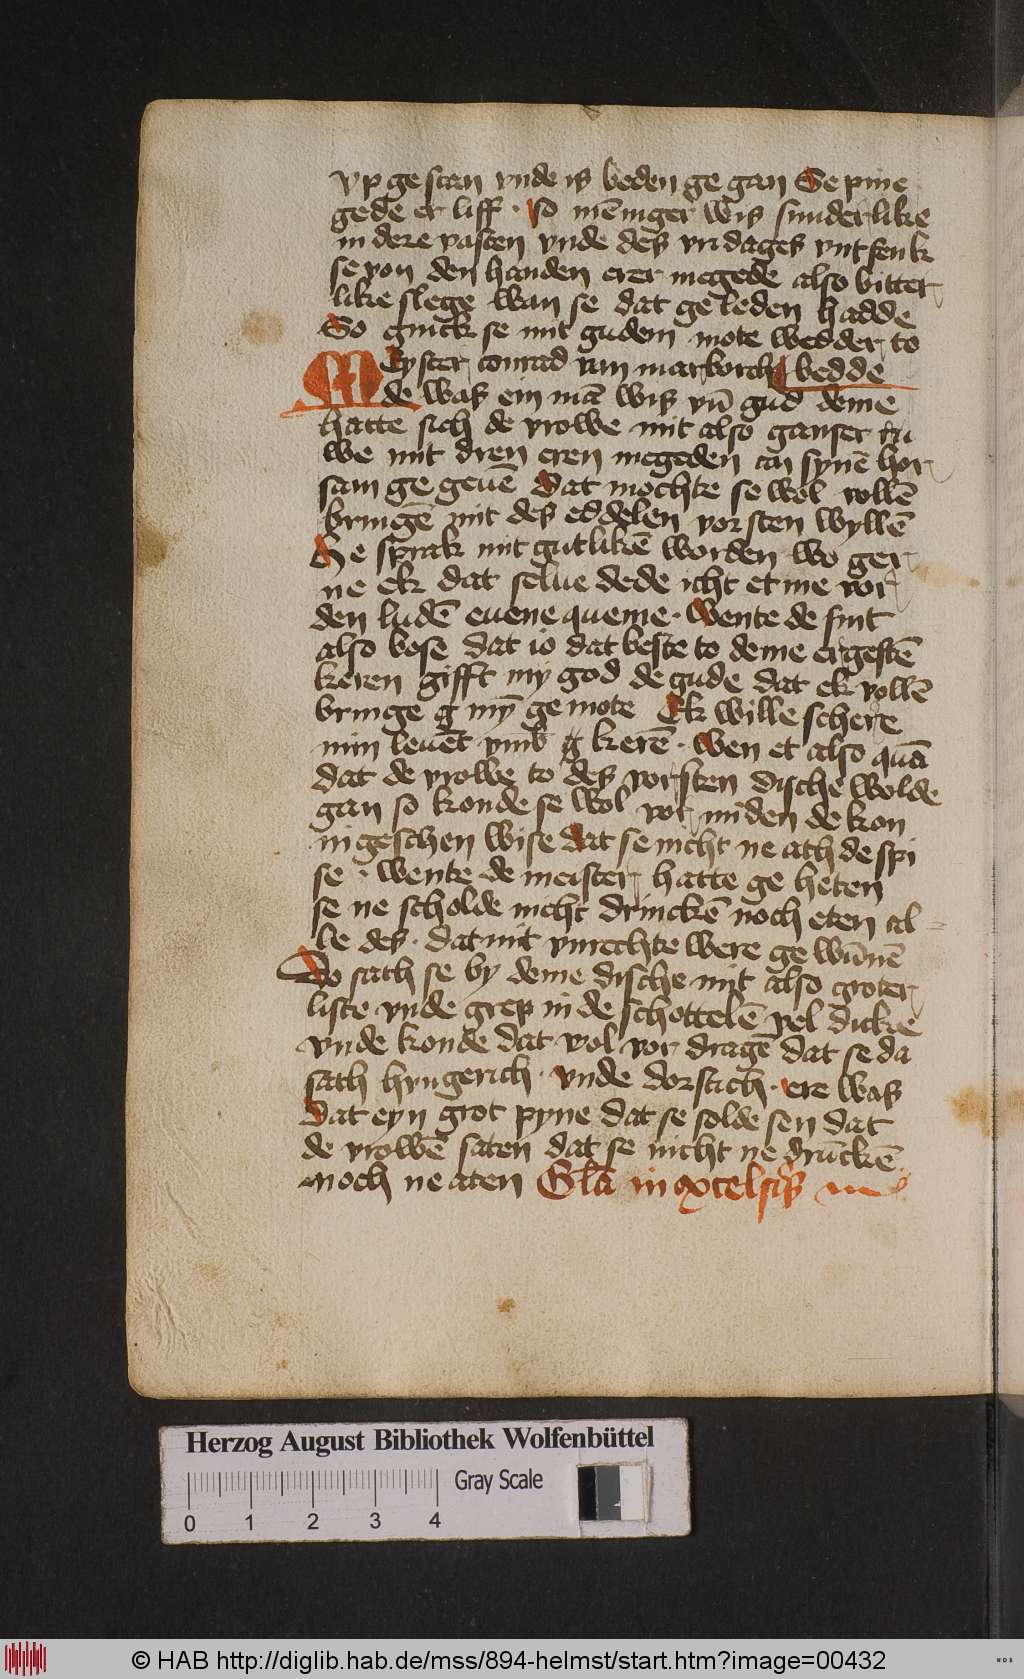 vp ge stan vnde is beden ge gan Se pine
gede er liff · so mēniger wis sunderlike
in dere vasten vnde des vridages vntfenk
se von den handen erer megede also bitter
like slege wan se dat ge leden hadde
So ginck se mit gudem mote wedder to
MEyster conrad van marborch bedde
de was ein mā wis vñ gud deme
hatte sich de vrowe mit also ganser tru
we mit dren eren megeden an synē hor
sam ge geuē dat mochte se wol vollē
bringē mit des eddelen vorsten wyllē
He sprak mit gutlikē worden wo ger
ne ek dat selue dede icht et me vor
den ludē euene queme · wente de sint
also bose dat io dat beste to deme ergestē
keren gifft my god de gude dat ek vollē
bringe mynē ge mote Ek wille schere
min leuēt vmb kerē · wen et also quā
dat de vrowe to des vorsten dische wolde
gan so konde se wol vor miden de kon
nigeschen wise dat se nicht ne ath de spi
se · wente de meister hatte ge heten
se ne scholde nicht drinckē noch eten al
le des · dat mit vnrechte were ge wūnē
Do sath se by deme dische mit also groter
liste vnde grep in de schottelē vel dicke
vnde konde dat wol vor dragē dat se da
sath hyngerich · vnde dorstich · ere was
dat eyn grot pyne dat se solde sen dat
de vrowē saten dat se nicht ne drūckē
noch ne aten Gla in excelsis
Herzog August Bibliothek Wolfenbüttel
Gray Scale
0 1 2 3 4
© HAB http://diglib.hab.de/mss/894-helmst/start.htm?image=00432